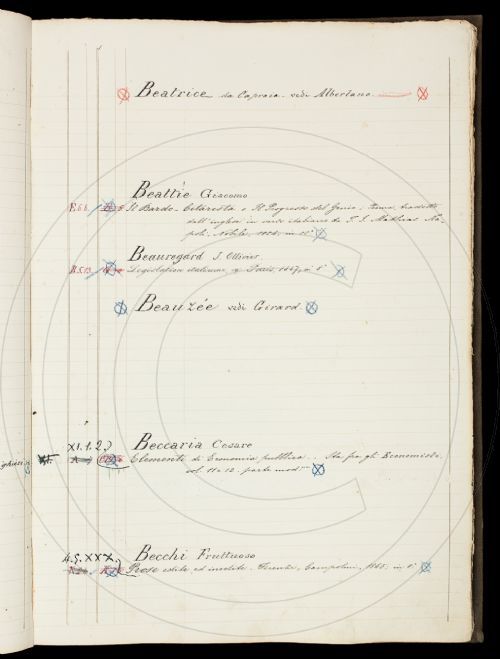 Beatrice da Capraia. vedi Albertano
Beattie Giacomo
E.6.6. Il Bardo- Cetarista o Il Progresso del Genio. Poema, tradotto
dall' inglese in verso italiano da T. J. Mathias Na-
poli. Nobile, in 12°
Beauregard J. Ollivier
Legislation italienne. Paris, in 8°
Beauzée vedi Girard
XI.1.2.
Beccaria Cesare
Elementi di Economia pubblica.. Sta fra gli Economisti.
vol. 11 e 12. parte mod.
4.5.XXX.
Becchi Fruttuoso
Prose edite ed inedite. Firenze, Campolini, in 8°